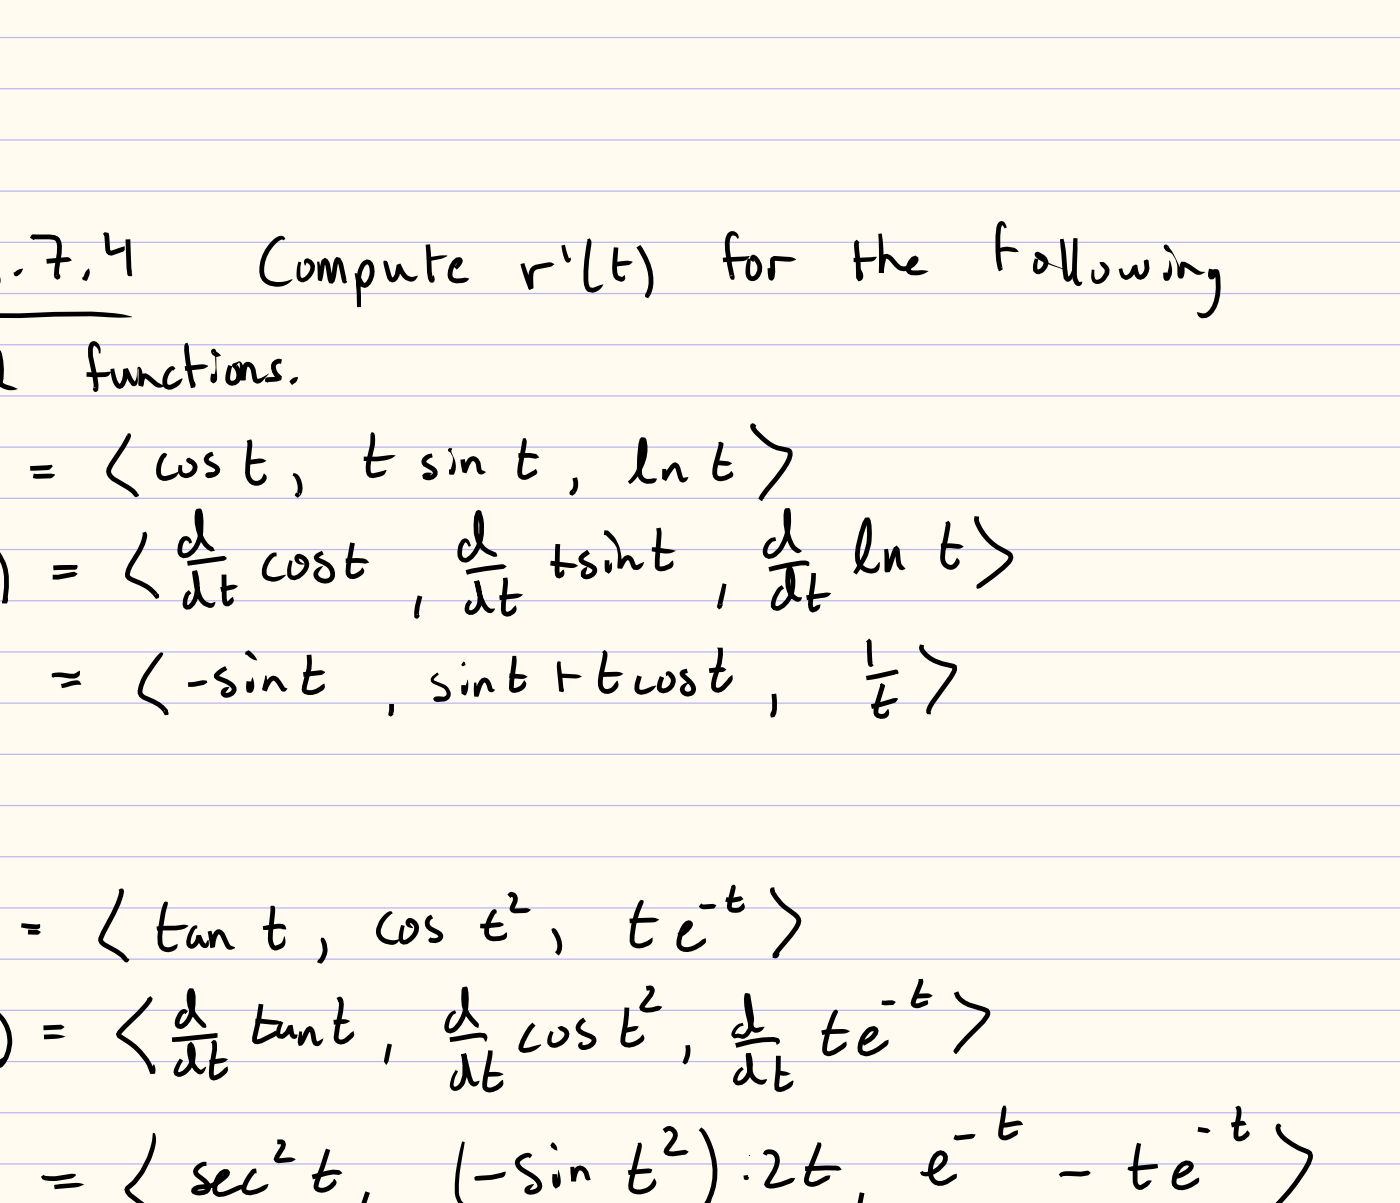 .7.4 Compute r'(t) for the following
functions.
= ⟨cos t, t sin t, ln t⟩
) = ⟨d/dt cos t, d/dt t sin t, d/dt ln t⟩
= ⟨-sin t, sin t + t cos t, 1/t⟩
= ⟨tan t, cos t², t e^-t⟩
) = ⟨d/dt tan t, d/dt cos t², d/dt t e^-t⟩
= ⟨sec² t, (-sin t²)·2t, e^-t - t e^-t⟩